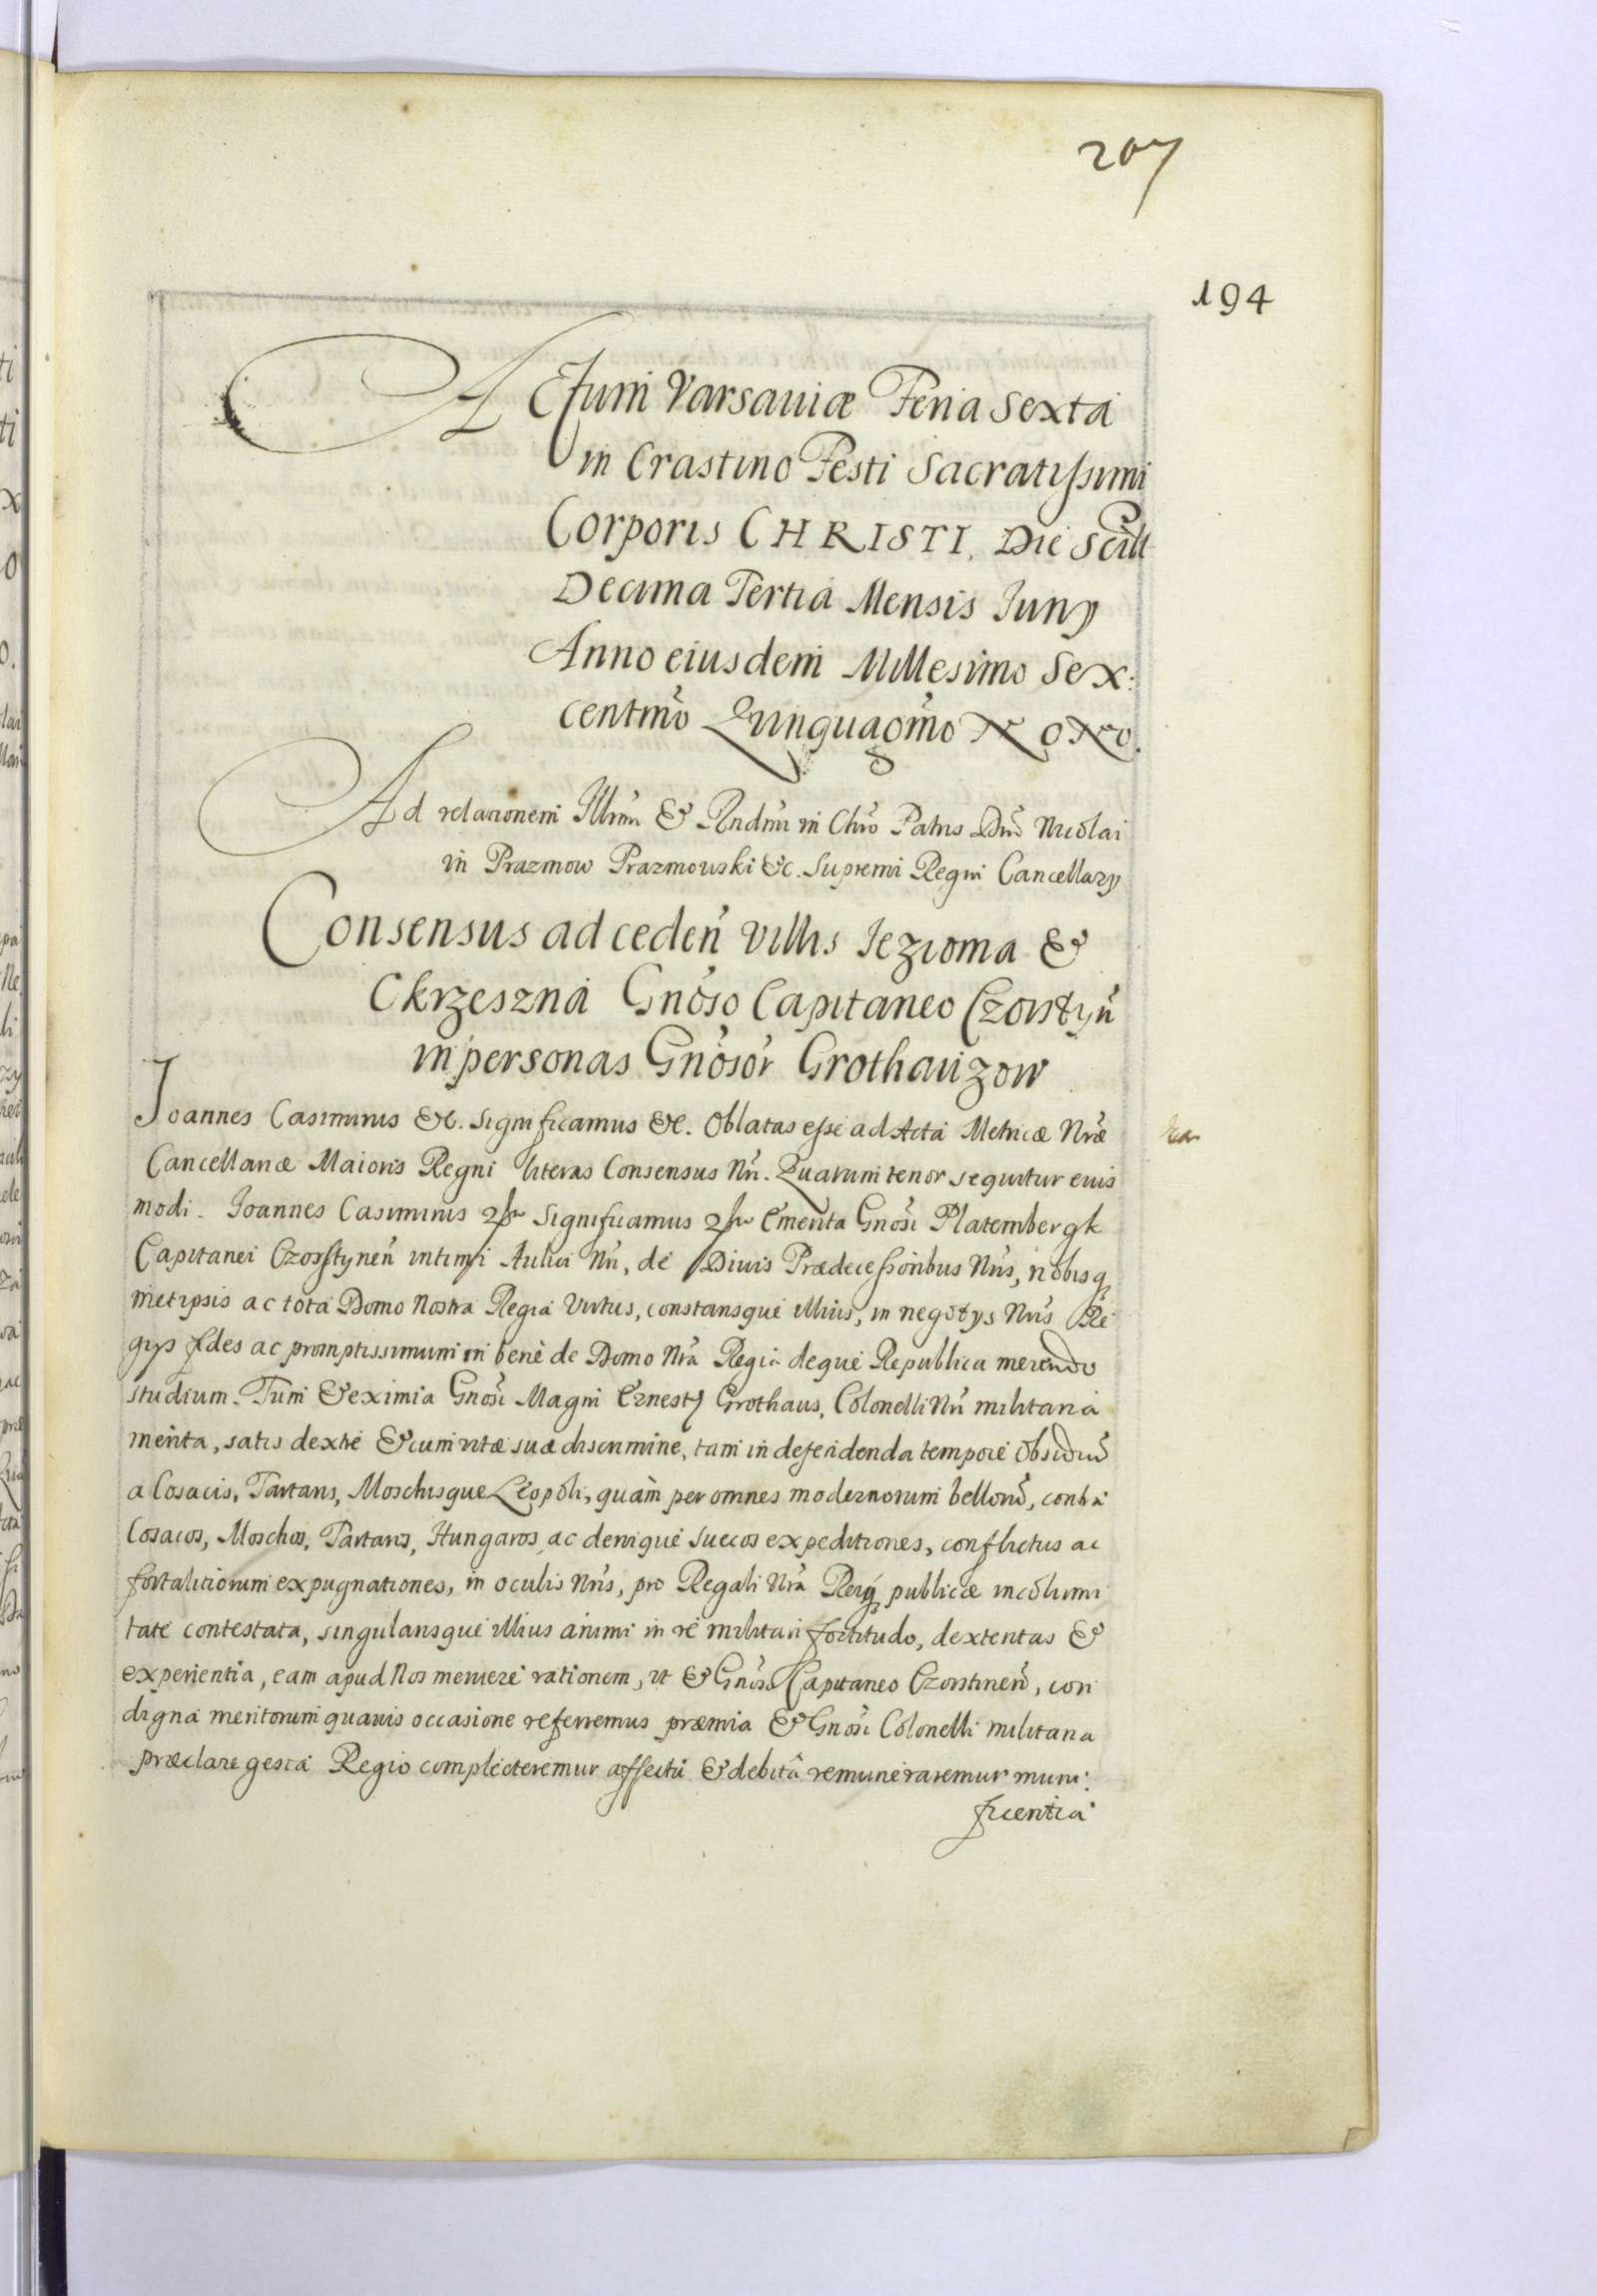 207
194
Actum Varsauiæ Feria Sexta
in Crastino Festi Sacratissimi
Corporis CHRISTI. Die Scilt
Decima Tertia Mensis Iuny
Anno eiusdem Millesimo Sex:
centmo Quinquagmo Nono.
Ad relationem Illrm & Rndmi in Chro Patris Dni Nicolai
in Prazmow Prazmouski &c. Supremi Regni Cancellary
Consensus ad ceden Villis Iezioma &
Ckrzeszna Gnoso Capitaneo Czorstyn
in personas Gnosor Grothauzow
Ioannes Casimirus &c. Significamus &c. Oblatas esse ad Acta Metricæ Nræ
Cancellariæ Maioris Regni literas Consensus Nri. Quarum tenor sequitur eius
modi. Ioannes Casimirus Significamus Emerita Gnosi Platembergk
Capitanei Czorstynen intimi Aulici Nri, de Diuis Prædecessoribus Nris, nobisq
metipsis ac tota Domo Nostra Regia Virtus, constansque illius, in negotys Nris Re
gys fides ac promptissimum in bene de Domo Nra Regia deque Republica merendo
studium. Tum & eximia Gnosi Magni Ernesty Grothaus, Colonelli Nri militaria
merita, satis dextre & cum vitæ suæ discrimine, tam in defendenda tempore obsidion
a Cosacis, Tartaris, Moschisque Leopoli, quàm per omnes modernorum bellorū, contra
Cosacos, Moschos, Tartaros, Hungaros ac denique Suecos expeditiones, conflictus ac
fortalitiorum expugnationes, in oculis Nris, pro Regali Nra Reiq publicæ incolumi
tate contestata, singularisque illius animi in re militari fortitudo, dexteritas &
experientia, eam apud Nos meruere rationem, vt & Gnoso Capitaneo Czorstinen, con
digna meritorum quauis occasione referremus præmia & Gnosi Colonelli militaria
præclare gesta Regio complecteremur affectu & debitâ remuneraremur muni:
ficentia